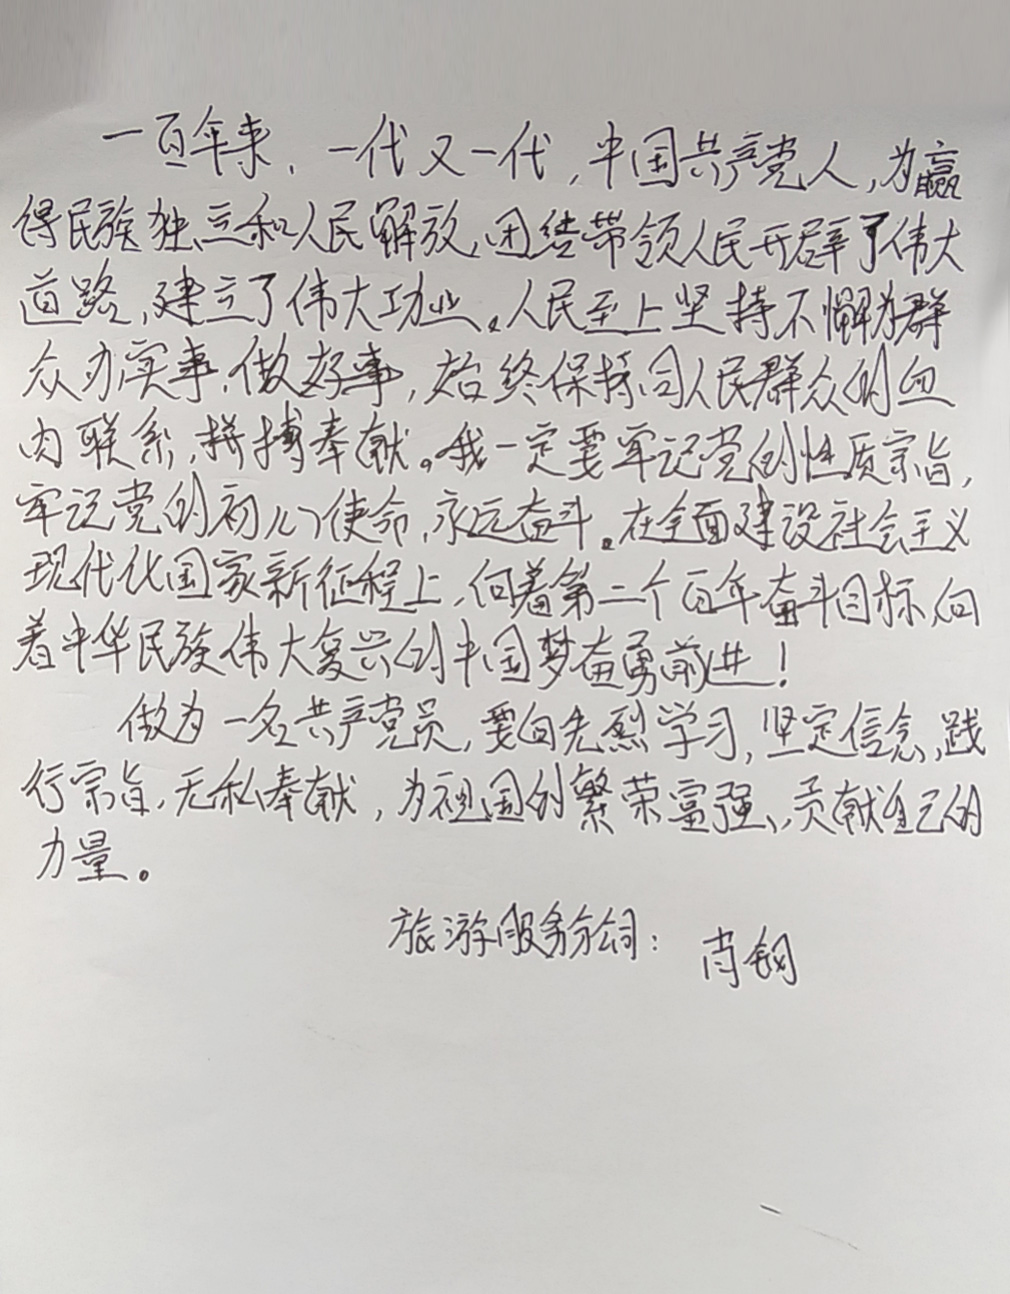 一百年来、一代又一代，中国共产党人，为赢
得民族独立和人民解放，团结带领人民开辟了伟大
道路，建立了伟大功业。人民至上坚持不懈为群
众办实事，做好事，始终保持同人民群众的血
肉联系，拼搏奉献。我一定要牢记党的性质宗旨，
牢记党的初心使命，永远奋斗。在全面建设社会主义
现代化国家新征程上，向着第二个百年奋斗目标，向
着中华民族伟大复兴的中国梦奋勇前进！
做为一名共产党员，要向先烈学习，坚定信念，践
行宗旨，无私奉献，为祖国的繁荣富强，贡献自己的
力量。
旅游服务分公司：肖钢